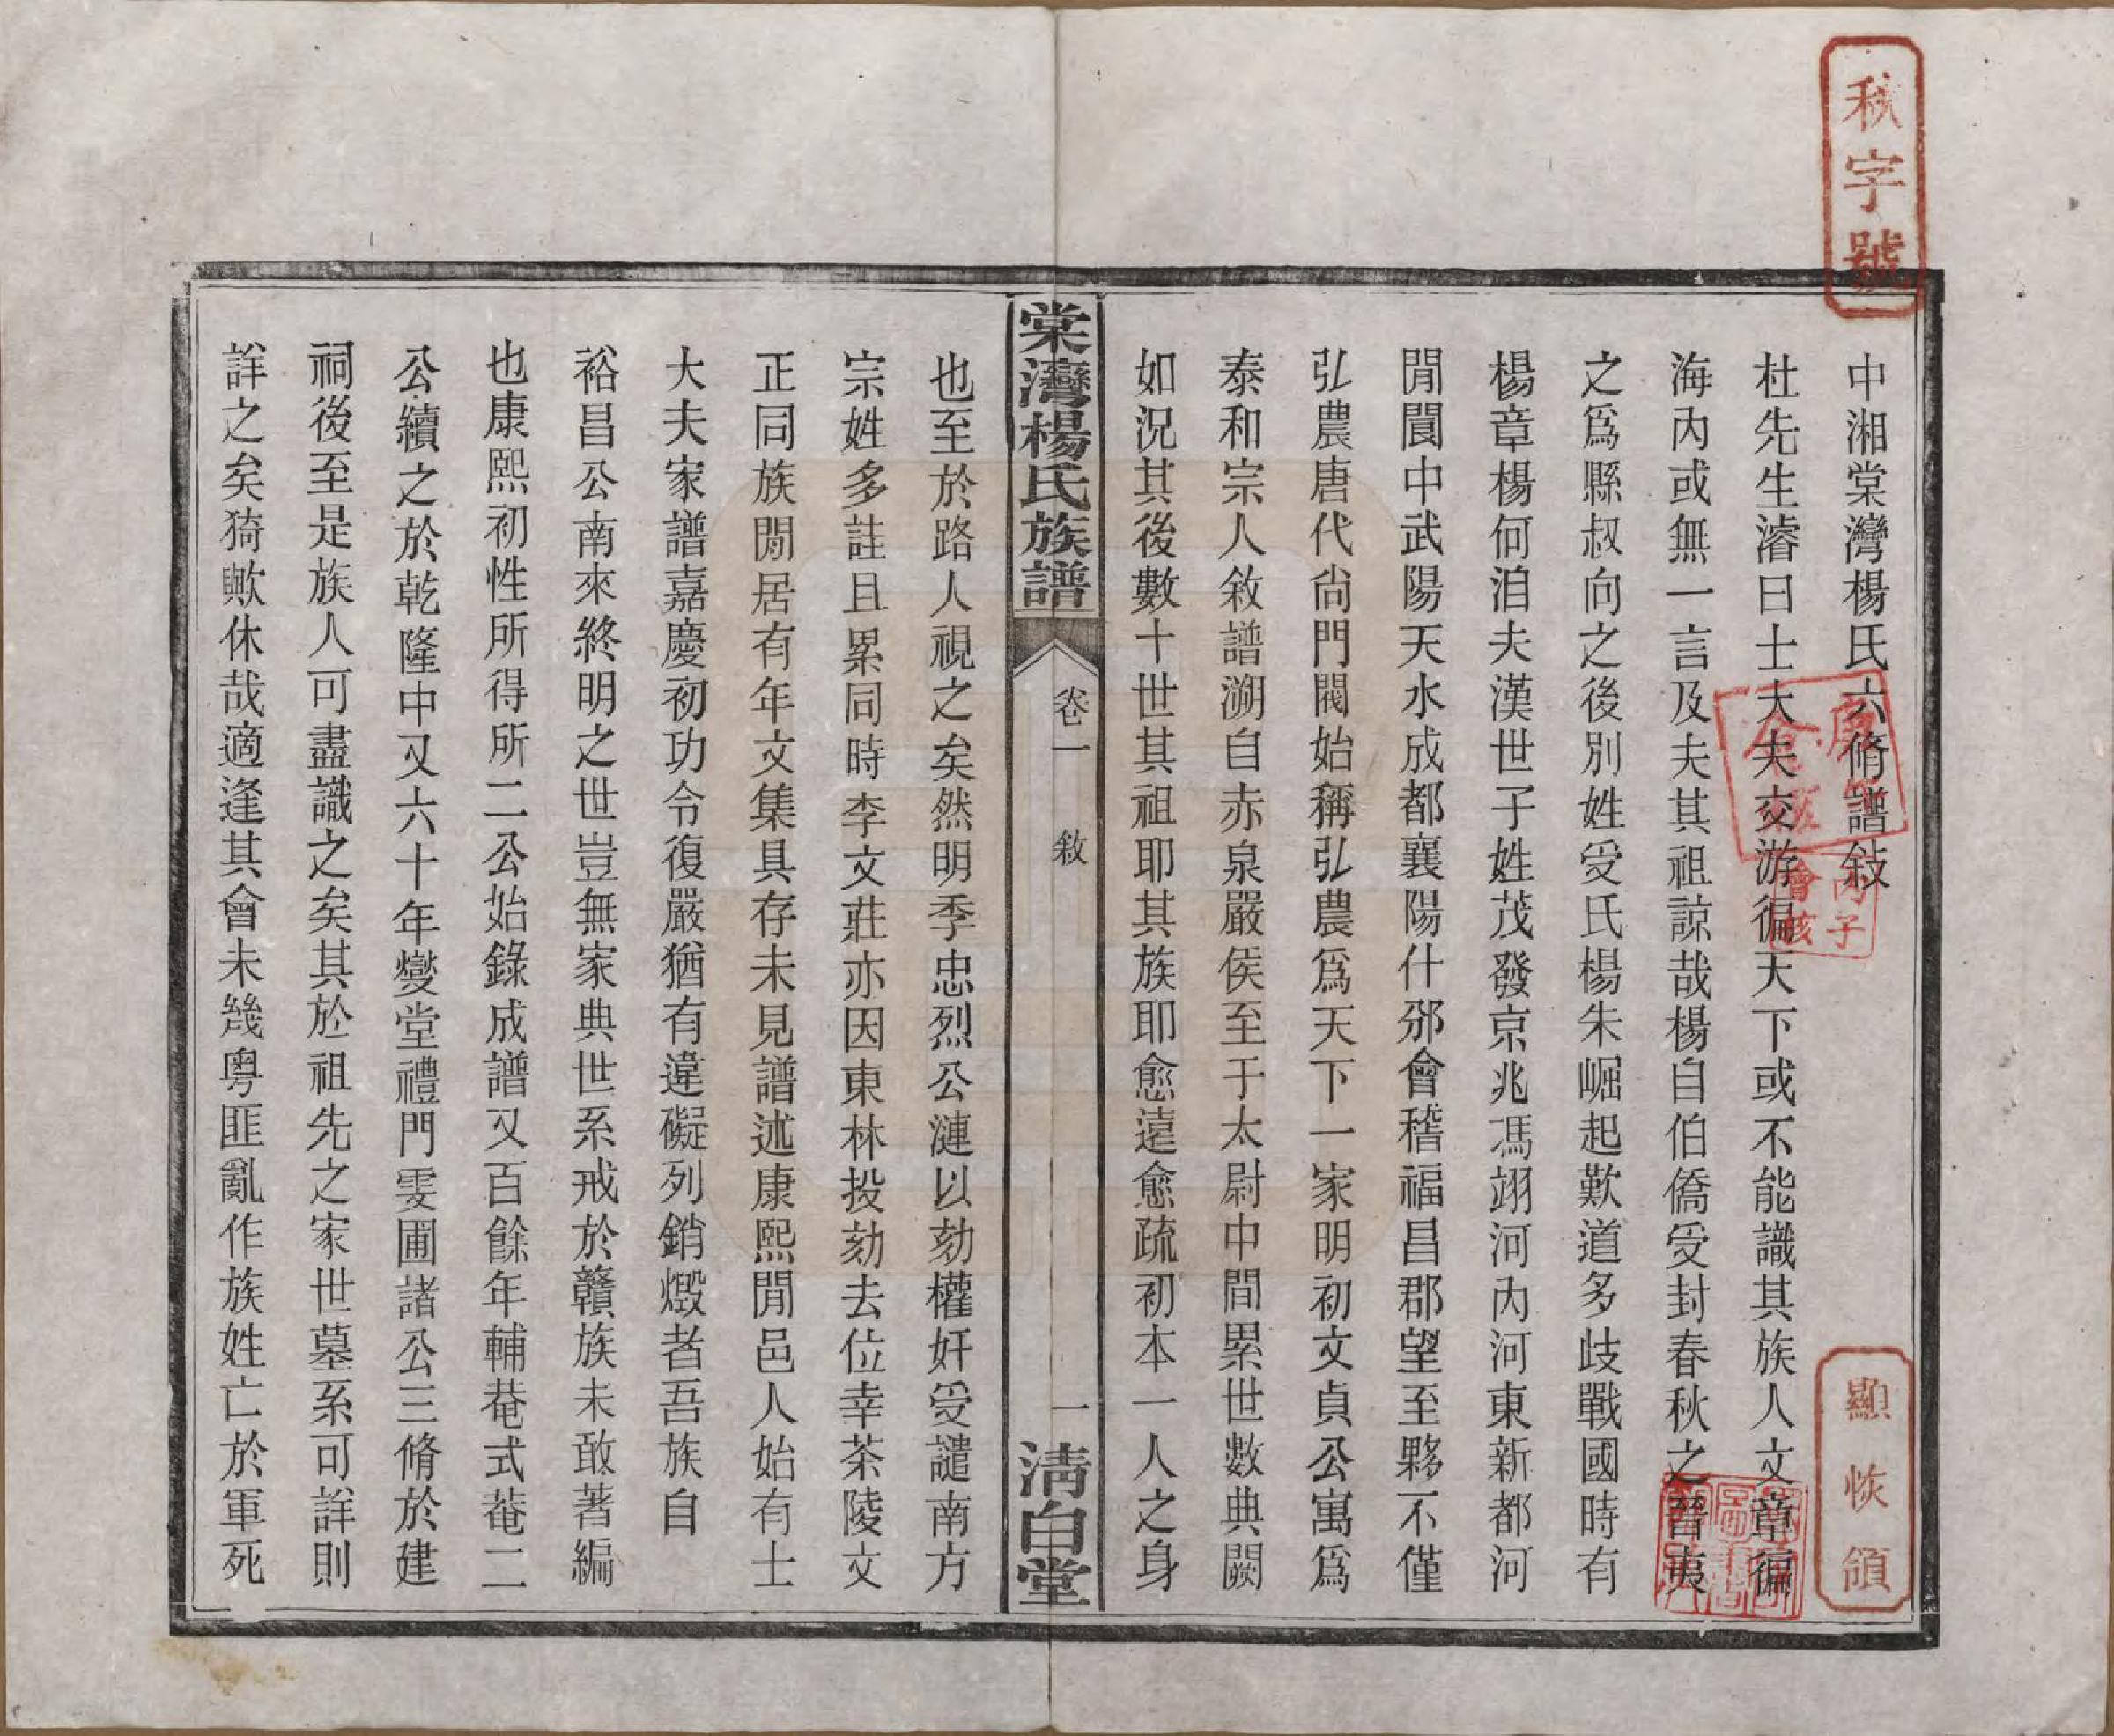 秋字號
中湘棠灣楊氏六脩譜敍
杜先生濬曰士大夫交游徧天下或不能識其族人文章徧
海內或無一言及夫其祖諒哉楊自伯僑受封春秋之晉夷
之爲縣叔向之後別姓受氏楊朱崛起歎道多歧戰國時有
楊章楊何洎夫漢世子姓茂發京兆馮翊河內河東新都河
閒閬中武陽天水成都襄陽什邡會稽福昌郡望至夥不僅
弘農唐代尙門閥始稱弘農爲天下一家明初文貞公寓爲
泰和宗人敘譜溯自赤泉嚴侯至于太尉中間累世數典闕
如況其後數十世其祖耶其族耶愈遠愈疏初本一人之身
棠灣楊氏族譜
卷一
敘
一
淸白堂
也至於路人視之矣然明季忠烈公漣以劾權奸受譴南方
宗姓多註且累同時李文莊亦因東林投劾去位幸茶陵文
正同族閒居有年文集具存未見譜述康熙閒邑人始有士
大夫家譜嘉慶初功令復嚴猶有違礙列銷燬者吾族自
裕昌公南來終明之世豈無家典世系戒於贛族未敢著編
也康熙初性所得所二公始錄成譜又百餘年輔菴式菴二
公續之於乾隆中又六十年燮堂禮門雯圃諸公三脩於建
祠後至是族人可盡識之矣其於祖先之家世墓系可詳則
詳之矣猗歟休哉適逢其會未幾粵匪亂作族姓亡於軍死
顯恢領
丙子
會該